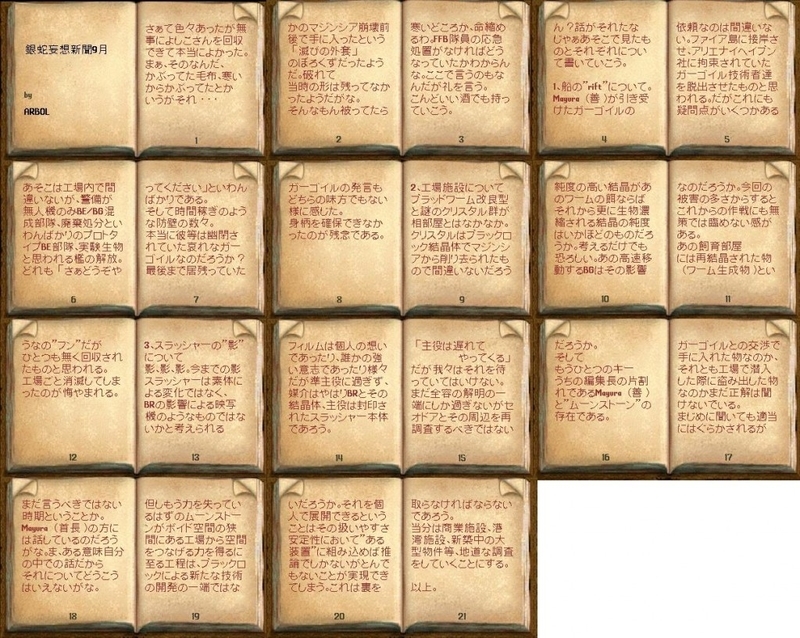 銀蛇妄想新聞9月
by
ARBOL
さぁて色々あったが無
事によしこさんを回収
できて本当によかった。
まぁ、そのなんだ、
かぶってた毛布、寒い
からかぶってたとか
いうがそれ・・・
1
かのマジンシア崩壊前
後で手に入ったという
「滅びの外套」
のほろくずだったよう
だ。破れて
当時の形は残ってなか
ったようだがな。
そんなもん被ってたら
2
寒いどころか、命縮め
るわ。FFB隊員の応急
処置がなければどう
なっていたかわからん
な。ここで言うのもな
んだが礼を言う。
こんどいい酒でも持っ
ていこう。
3
ん?話がそれたな
じゃぁあそこで見たも
のとそれぞれについ
て書いていこう。
1、船の"rift"について。
Mayura（善）が引き受
けたガーゴイルの
4
依頼なのは間違いな
い。ファイア島に接岸さ
せ、アリエナイヘイブン
社に拘束されていた
ガーゴイル技術者達
を脱出させたものと思
われる。だがこれにも
疑問点がいくつかある
5
あそこは工場内で間
違いないが、警備が
無人機のみBE/BG混
成部隊、廃棄処分とい
わんばかりのプロトタ
イプBE部隊、実験生物
と思われる檻の解放。
どれも「さぁどうぞや
6
ってください」といわん
ばかりである。
そして時間稼ぎのよう
な防壁の数々。
本当に彼等は幽閉さ
れていた哀れなガー
ゴイルなのだろうか?
最後まで居残っていた
7
ガーゴイルの発言も
どちらの味方でもない
様に感じた。
身柄を確保できなか
ったのが残念である。
8
2、工場施設について
ブラッドワーム改良型
と謎のクリスタル群が
相部屋とはなかなか。
クリスタルはブラックロ
ック結晶体でマジンシ
アから削り去られたも
ので間違いないだろう
9
純度の高い結晶があ
のワームの餌ならば
それから更に生物濃
縮される結晶の純度
はいかほどのものだろ
うか。考えるだけでも
恐ろしい。あの高速移
動するBGはその影響
10
なのだろうか。今回の
被害の多さからすると
これからの作戦にも無
策では臨めない感が
ある。
あの飼育部屋
には再結晶された物
（ワーム生成物）とい
11
うなの"フン"だが
ひとつも無く回収され
たものと思われる。
工場ごと消滅してしま
ったのが悔やまれる。
12
3、スラッシャーの"影"
について
影、影、影。今までの影
スラッシャーは素体に
よる変化ではなく、
BRの影響による映写
機のようなものではな
いかと考えられる
13
フィルムは個人の想い
であったり、誰かの強
い意志であったり様々
だが準主役に過ぎず、
媒介はやはりBRとその
結晶体、主役は封印さ
れたスラッシャー本体
であろう。
14
「主役は遅れて
やってくる」
だが我々はそれを待
っていてはいけない。
まだ全容の解明の一
端にしか過ぎないがセ
オドアとその周辺を再
調査するべきではない
15
だろうか。
そして
もうひとつのキー
うちの編集長の片割
れであるMayura（善）
と"ムーンストーン"の
存在である。
16
ガーゴイルとの交渉で
手に入れた物なのか、
それとも工場で潜入
した際に盗み出した物
なのかまだ正解は聞
けないでいる。
まじめに聞いても適当
にはぐらかされるが
17
まだ言うべきではない
時期ということか。
Mayura（首長）の方に
は話しているのだろう
がな。ま、ある意味自分
の中での話だから
それについてどうこう
はいえないがな。
18
但しもう力を失ってい
るはずのムーンストー
ンがボイド空間の狭
間にある工場から空間
をつなげる力を得るに
至る工程は、ブラックロ
ックによる新たな技術
の開発の一端ではな
19
いだろうか。それを個
人で展開できるという
ことはその扱いやすさ
安定性において"ある
装置"に組み込めば推
論でしかないがとんで
もないことが実現でき
てしまう。これは裏を
20
取らなければならない
であろう。
当分は商業施設、港
湾施設、新築中の大
型物件等、地道な調査
をしていくことにする。
以上。
21